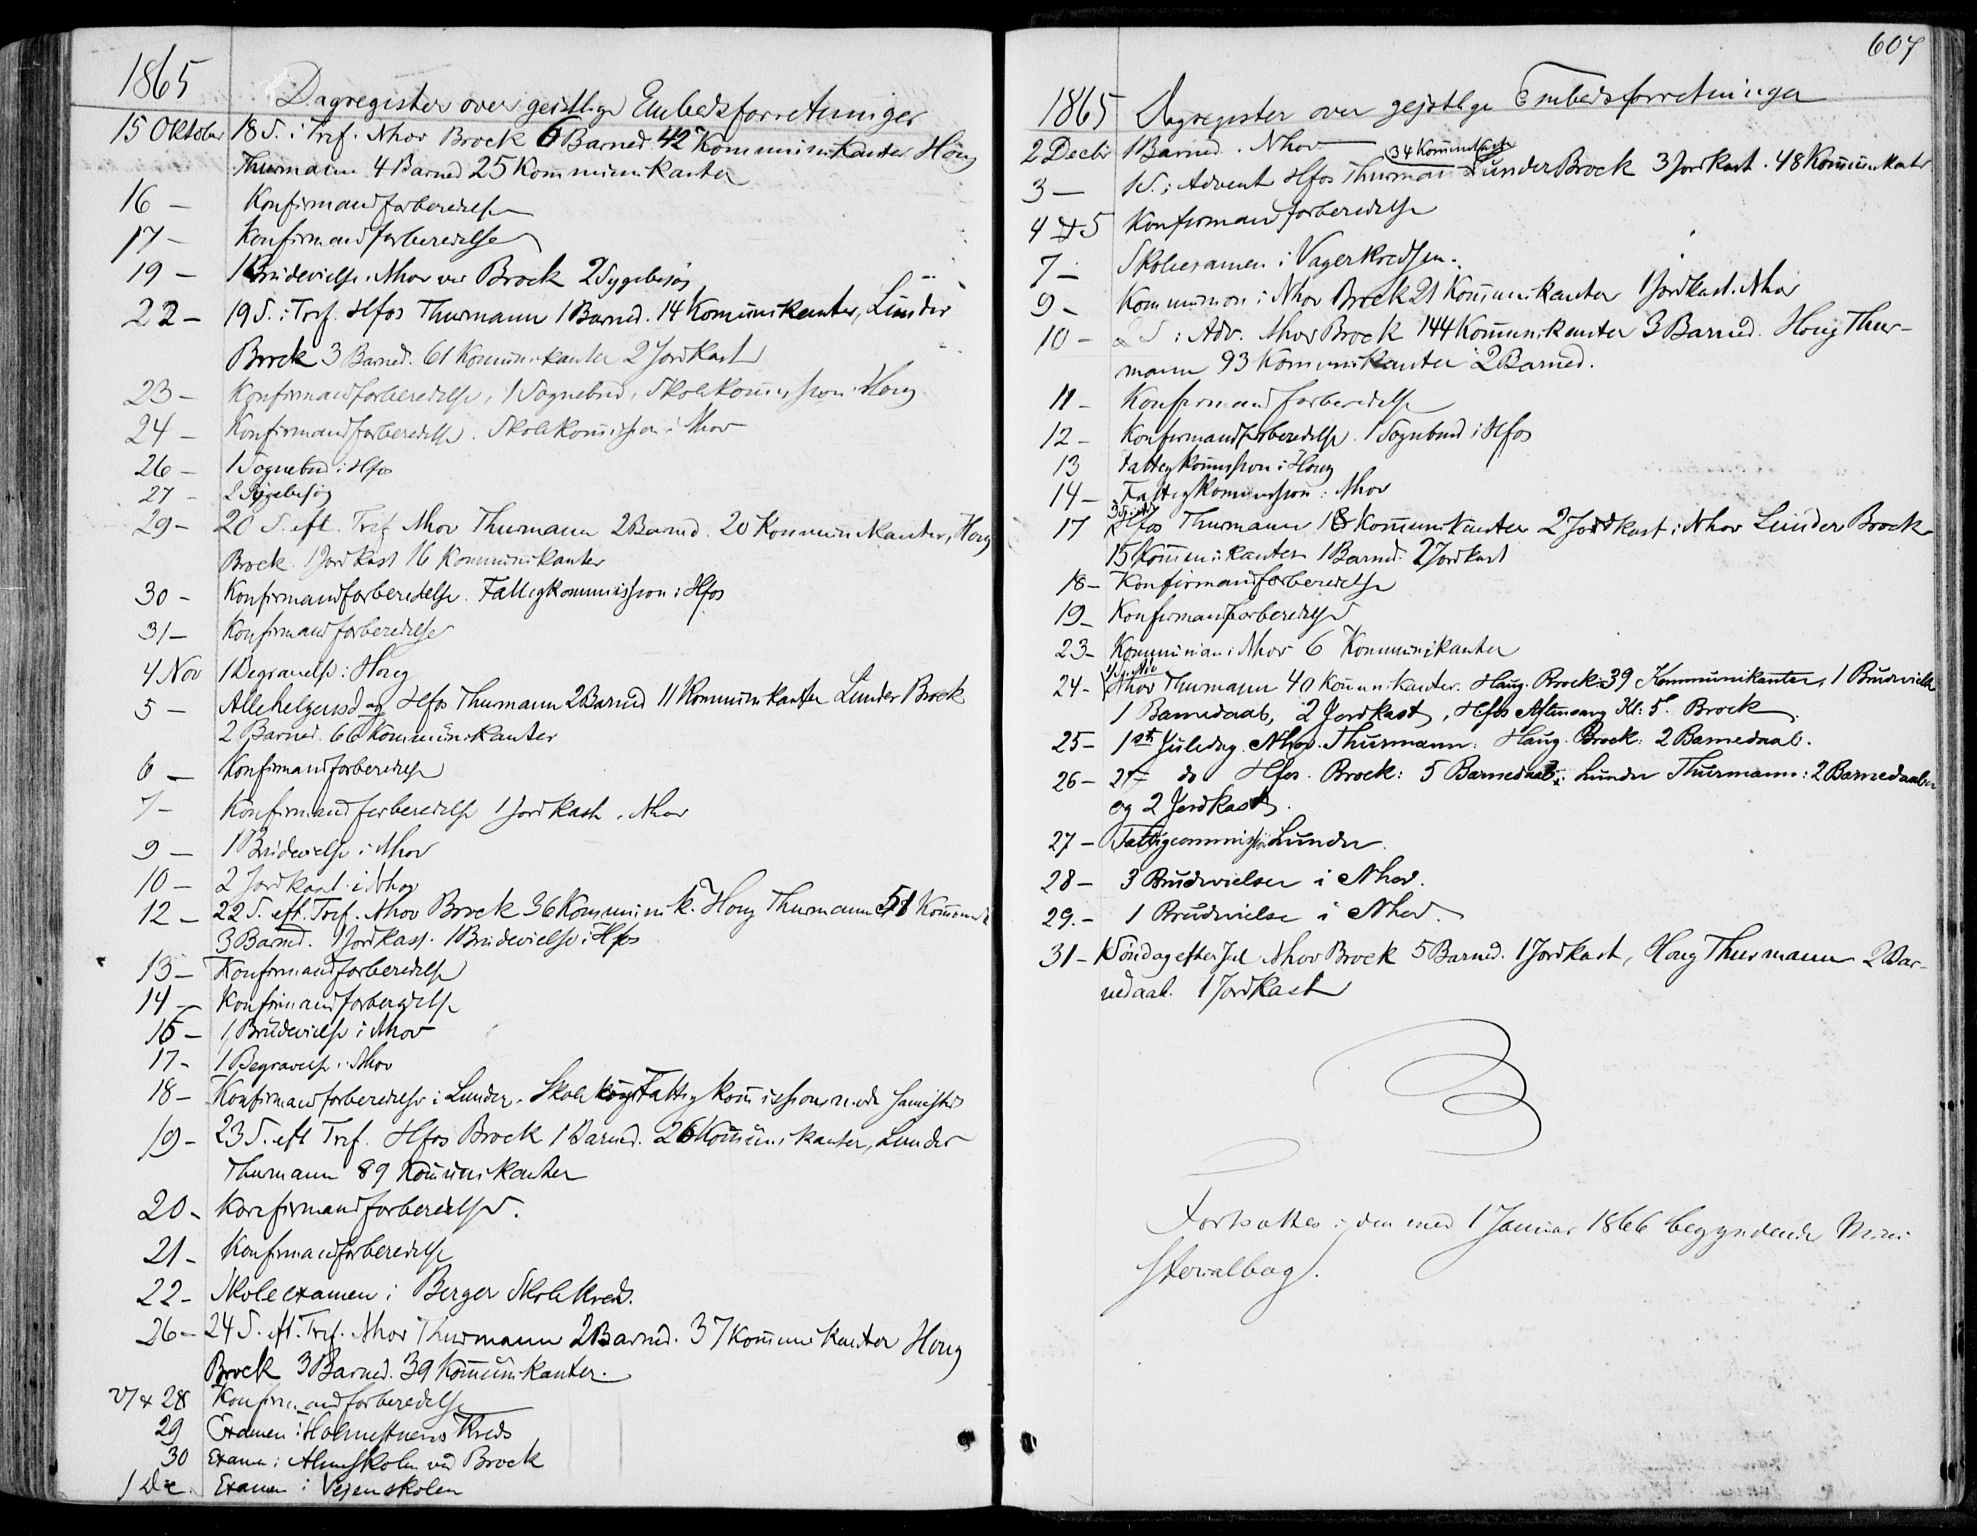 1865
Dagregister over geistlige Embedsforretninger
15 Oktober 18 S. i Tref. Nhov Brock 6 Barned. 42 Kommunikanter Houg
Thurmann 4 Barned 25 Kommunikanter
16 — Konfirmandforberedelse
17 — Konfirmandforberedelse
19 — 1 Brudevielse i Nhov ved Brock 2 Sygebesøg
22 — 19 S. i Tref. Hfos Thurmann 1 Barned. 14 Kom̄unikanter, Lunder
Brock 3 Barned. 61 Kommunikanter 2 Jordkast
23 — Konfirmandforberedelse, 1 Sognebud, Skolekom̄ission i Houg
24 — Konfirmandforberedelse. Skolekom̄ission i Nhov
26 — 1 Sognebud i Hfos
27 — 2 Sygebesøg
29 — 20 S. eft. Tref Nhov Thurmann 2 Barned. 20 Kommunikanter, Houg
Brock 1 Jordkast 16 Kommunikanter
30 — Konfirmandforberedelse. Fattigkommission i Hfos
31 — Konfirmandforberedelse
4 Nov 1 Begravelse i Houg
5 — Allehelgensdag Hfos Thurmann 2 Barned 11 Kommunikanter Lunder Brock
2 Barned. 66 Kommunikanter
6 — Konfirmandforberedelse
7 — Konfirmandforberedelse 1 Jordkast i Nhov
9 — 1 Brudevielse i Nhov
10 — 2 Jordkast i Nhov
12 — 22 S. eft. Tref. Nhov Brock 36 Kommunik. Houg Thurmann 51 Kommunik
3 Barned. 1 Jordkast. 1 Brudevielse i Hfos
13 — Konfirmandforberedelse
14 — Konfirmandforberedelse
16 — 1 Brudevielse i Nhov
17 — 1 Begravelse i Nhov
18 — Konfirmandforberedelse i Lunder. Skole Fattigkom̄ission
19 — 23 S. eft Tref. Hfos Brock 1 Barned. 26 Kom̄unikanter, Lunder
Thurmann 89 Kom̄unikanter
20 — Konfirmandforberedelse.
21 — Konfirmandforberedelse
22 — Skoleexamen i Berger Skolekreds.
26 — 24 S. eft. Tref. Nhov Thurmann 2 Barned. 37 Kom̄unikanter Houg
Brock 3 Barned. 39 Kom̄unikanter.
27 & 28 Konfirmandforberedelse
29 Examen i Kreds
30 Examen i Almuskolen ved Brock
1 Dec. Examen i Veienskolen
607
1865 Dagregister over gejstlige Embedsforretninger
2 Decbr 1 Barned. Nhov
34 Kommunikanter
3 — 1 S. i Advent Hfos Thurmann Lunder Brock 3 Jordkast. 48 Kom̄unikanter
4 & 5 Konfirmandforberedelse
7 — Skoleexamen i Vagerkredsen.
9 — Kommunion i Nhov Brock 21 Kommunikanter 1 Jordkast. Nhov
10 — 2 S. i Adv. Nhov Brock 144 Kom̄unikanter 3 Barned. Houg Thur-
mann 93 Kommunikanter 2 Barned.
11 — Konfirmandforberedelse
12 — Konfirmandforberedelse. 1 Sognebud i Hfos
13 Fattigkom̄ission i Houg
14 — Fattigkommission i Nhov
17 Hfos Thurmann 18 Kommunikanter 2 Jordkast i Nhov Lunder Brock
15 Kom̄unikanter 1 Barned. 2 Jordkast
18 — Konfirmandforberedelse
19 — Konfirmandforberedelse
23 — Kommunion i Nhov 6 Kommunikanter
24 — Nhov Thurmann 40 Kom̄unikanter. Haug. Brock: 39 Kommunikanter, 1 Brudvielse
1 Barnedaab, 2 Jordkast, Hfos Aftensang Kl: 5. Brock
25 — 1ste Juledag. Nhov. Thurmann. Haug. Brock: 2 Barnedaab.
26 — 2den do Hfos. Brock: 5 Barnedaab. Lunder Thurmann: 2 Barnedaaber
og 2 Jordkast.
27 — Fattigcommission Lunder.
28 — 3 Brudvielser i Nhov.
29. — 1 Brudvielse i Nhov.
31 — Søndag efter Jul Nhov Brock 5 Barned. 1 Jordkast, Houg Thurmann 2 Bar-
nedaab. 1 Jordkast
Fortsættes i den med 1 Januar 1866 begyndende Mini-
sterialbog.